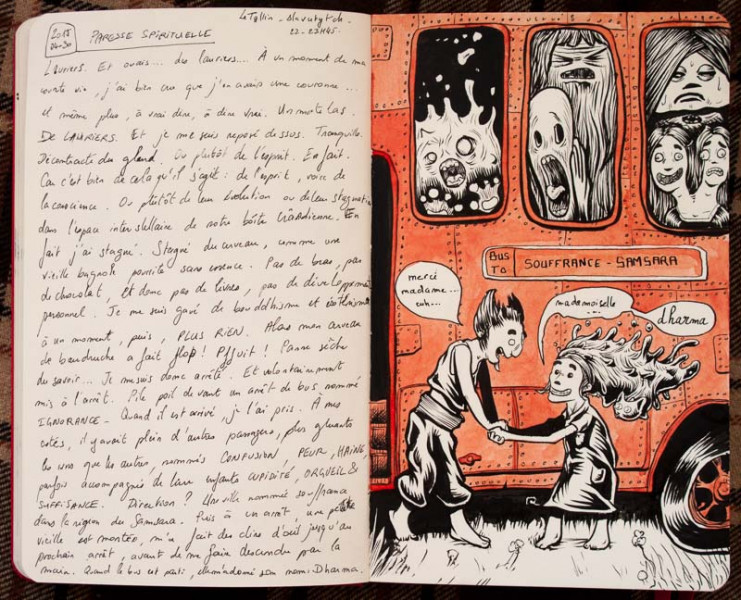 2015
04-20
PARESSE SPIRITUELLE
Le Tallin - Slavutytch.
22-27H45
Lauriers. Et ouais.... des lauriers.... À un moment de ma
courte vie, j'ai bien cru que j'en avais une couronne...
et même plus, à vrai dire, à dire vrai. Un matelas.
DE LAURIERS. Et je me suis reposé dessus. Tranquille.
Décontracté du gland. Ou plutôt de l'esprit. En fait.
Car c'est bien de cela qu'il s'agit : de l'esprit, voire de
la conscience. Ou plutôt de leur évolution ou de leur stagnation
dans l'espace interstellaire de notre boîte crânienne. En
fait j'ai stagné. Stagné du cerveau, comme une
vieille bagnole pourrite sans essence. Pas de bras, pas
de chocolat, et donc pas de livres, pas de développement
personnel. Je me suis gavé de bouddhisme et
à un moment, puis, PLUS RIEN. Alors mon cerveau
de baudruche a fait flop! Pffuit! Panne sèche
du savoir... Je me suis donc arrêté. Et volontairement
mis à l'arrêt. Pile poil devant un arrêt de bus nommé
IGNORANCE - Quand il est arrivé, je l'ai pris. À mes
cotés, il y avait plein d'autres passagers, plus gluants
les uns que les autres, nommés CONFUSION, PEUR, HAINE
parfois accompagnés de leurs enfants CUPIDITÉ, ORGUEIL &
SUFFISANCE. Direction? Une ville nommée souffrance
dans la région du Samsara. Puis à un arrêt, une petite
vieille est montée, m'a fait des clins d'œil jusqu'au
prochain arrêt, avant de me faire descendre par la
main. Quand le bus est parti, elle m'a donné son nom : Dharma.
BUS
TO
SOUFFRANCE - SAMSARA
merci
madame...
euh...
mademoiselle
dharma